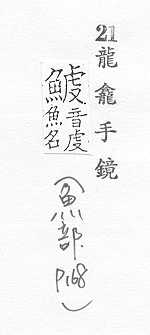 21 龍龕手鏡
鰬音虔
魚名
(魚部 P168)